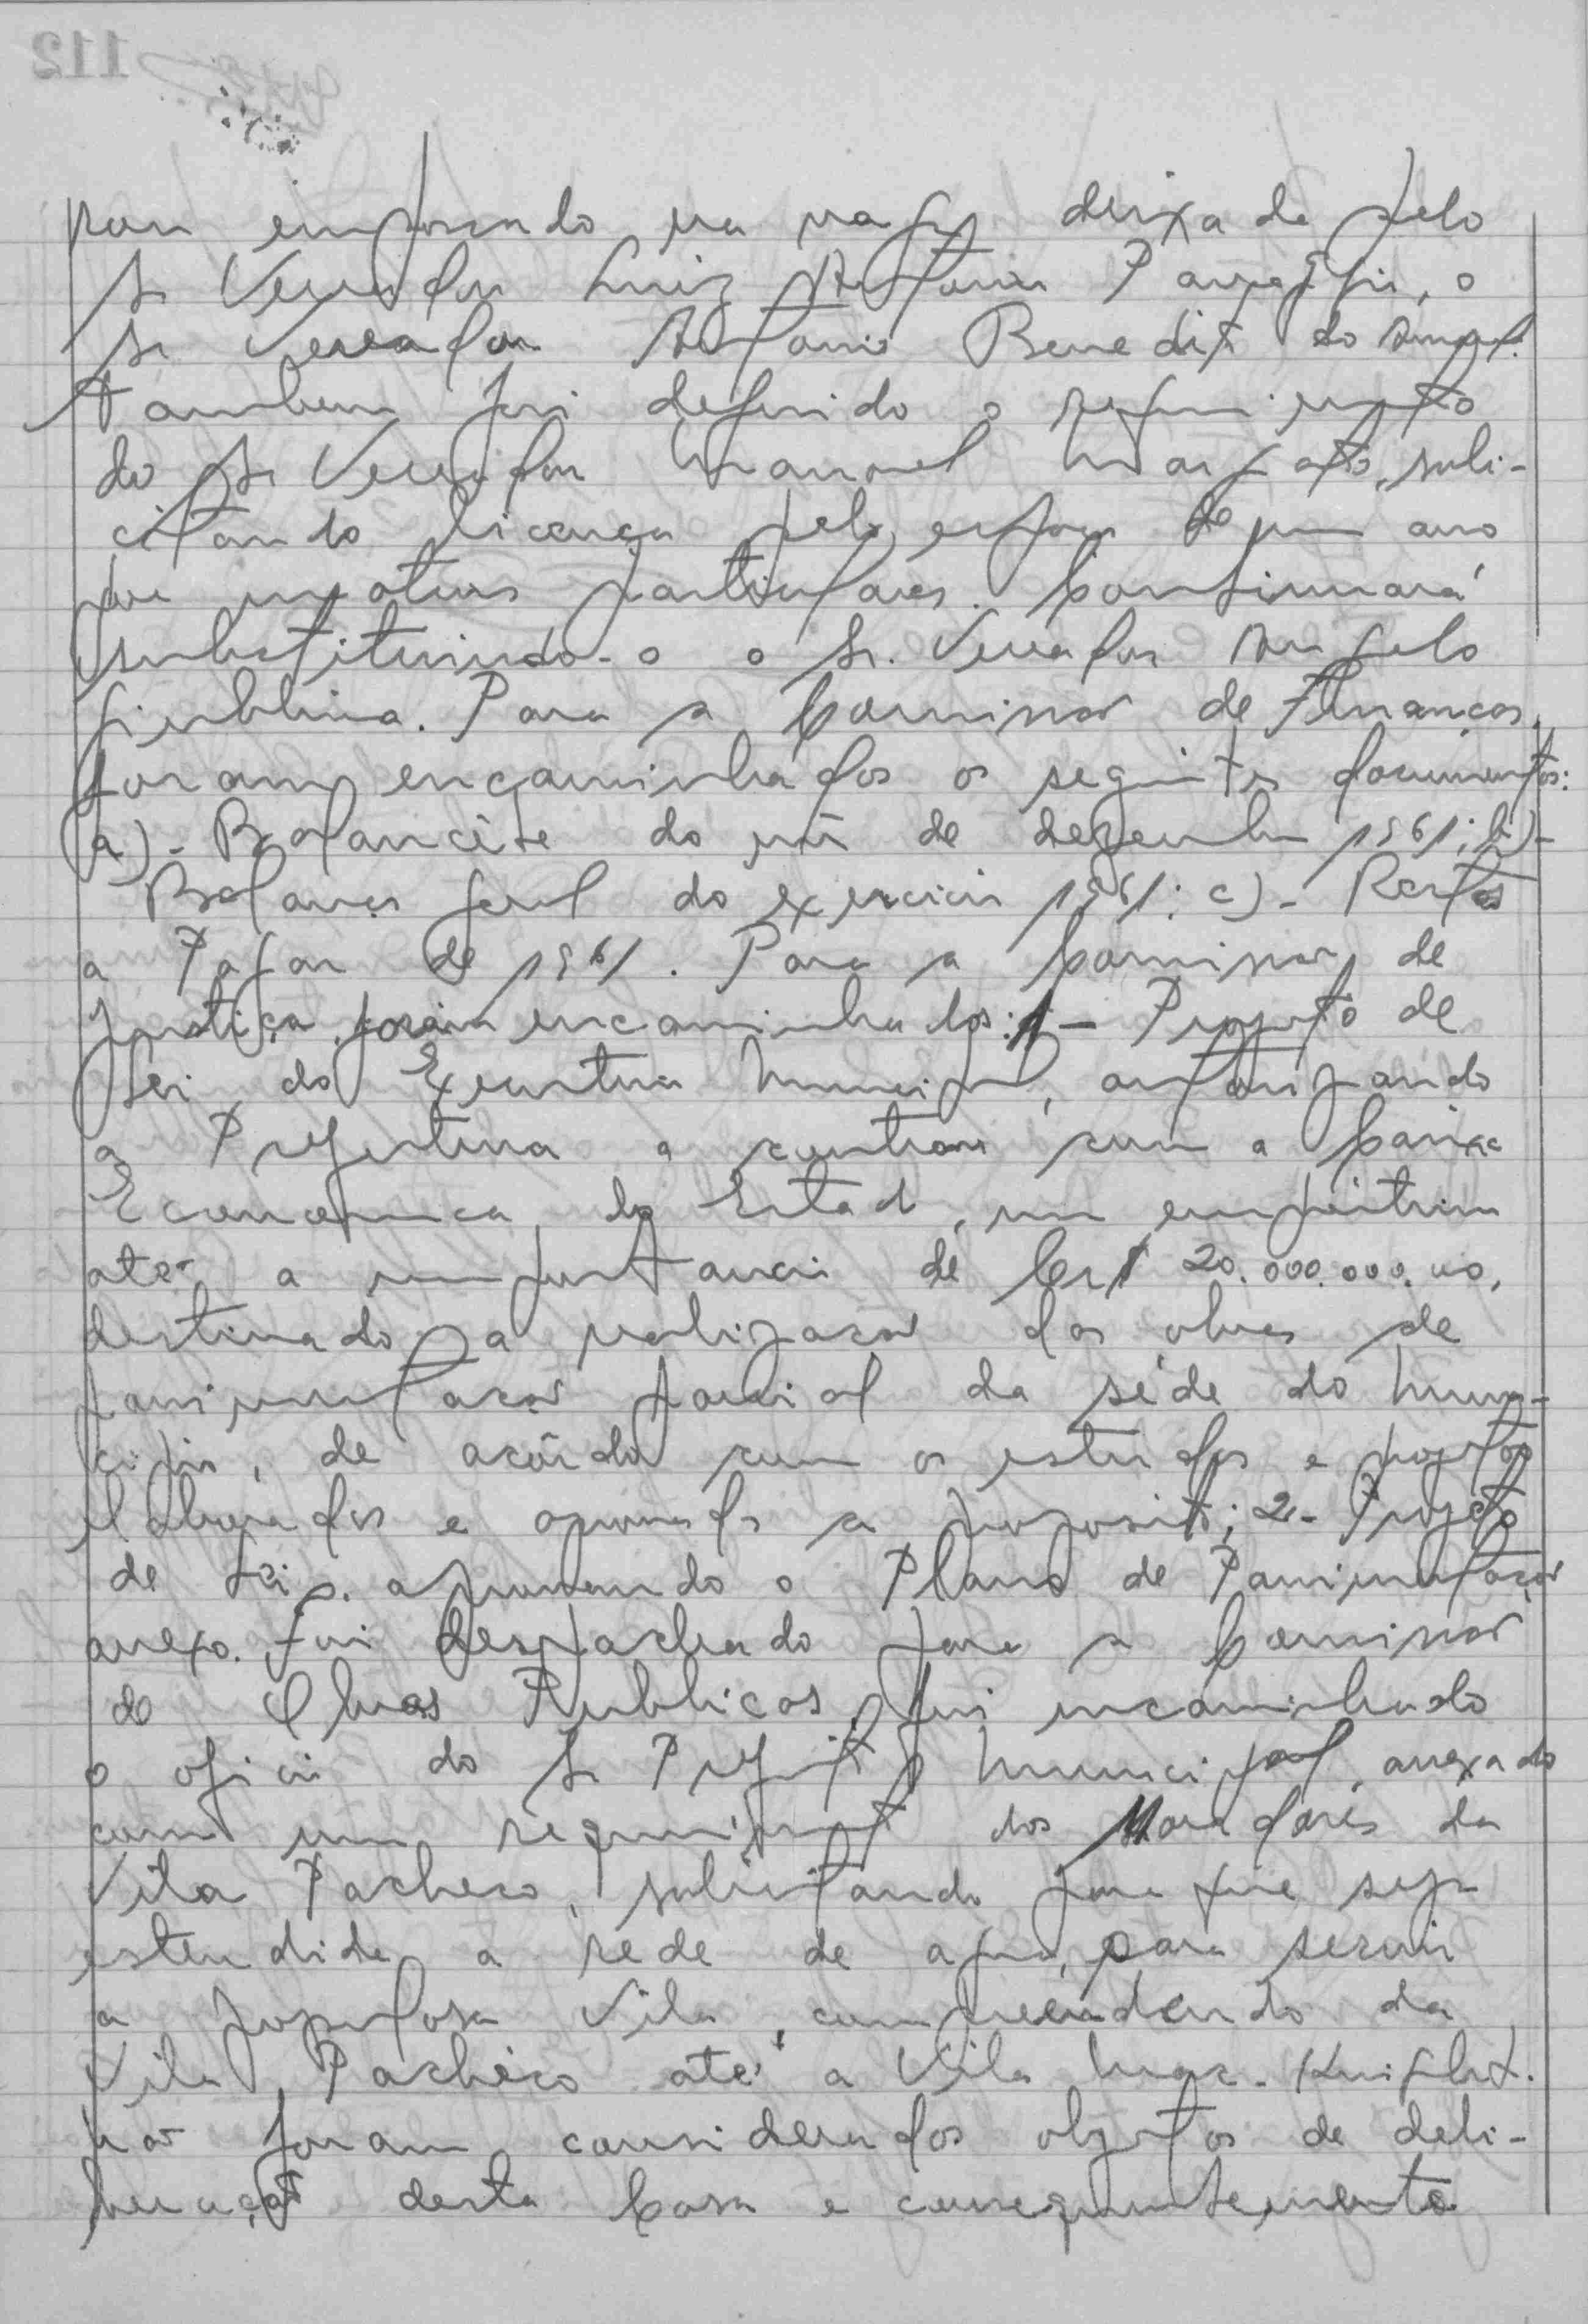 empossado na vaga deixada pelo
Sr Vereador Luiz Antonio, o
Sr Vereador Antonio Benedito do Amaral.
Tambem foi deferido o requerimento
do Sr Vereador Manoel, soli-
citando licença pelo espaço de um ano
por motivos particulares. Continuará
substituindo-o o Sr. Vereador Angelo
Para a Comissão de Finanças,
foram encaminhados os seguintes documentos:
a)- Balancête do mês de dezembro 1961; b)-
Balanço geral do exercicio 1961; c)- Restos
a Pagar de 1961. Para a Comissão de
Justiça foram encaminhados: 1- Projeto de
Lei do Executivo Municipal, autorizando
a Prefeitura a contrair com a Caixa
Economica do Estado, um empréstimo
até a importancia de Cr$ 20.000.000,00,
destinado a realização das obras de
pavimentação parcial da séde do Muni-
cipio, de acôrdo com os estudos e projetos
elaborados e aprovados a proposito; 2- Projeto
de Lei aprovando o Plano de Pavimentação
anexo. Foi despachado para a Comissão
de Obras Publicas, foi encaminhado
o oficio do Sr Prefeito Municipal, anexado
com um requerimento dos Moradores da
Vila Pacheco, solicitando para que seja
estendida a rede de agua, para servir
a populosa Vila, compreendendo da
Vila Pacheco até a Vila Mac-Knight.
Não foram considerados objetos de deli-
beração desta Casa e consequentemente